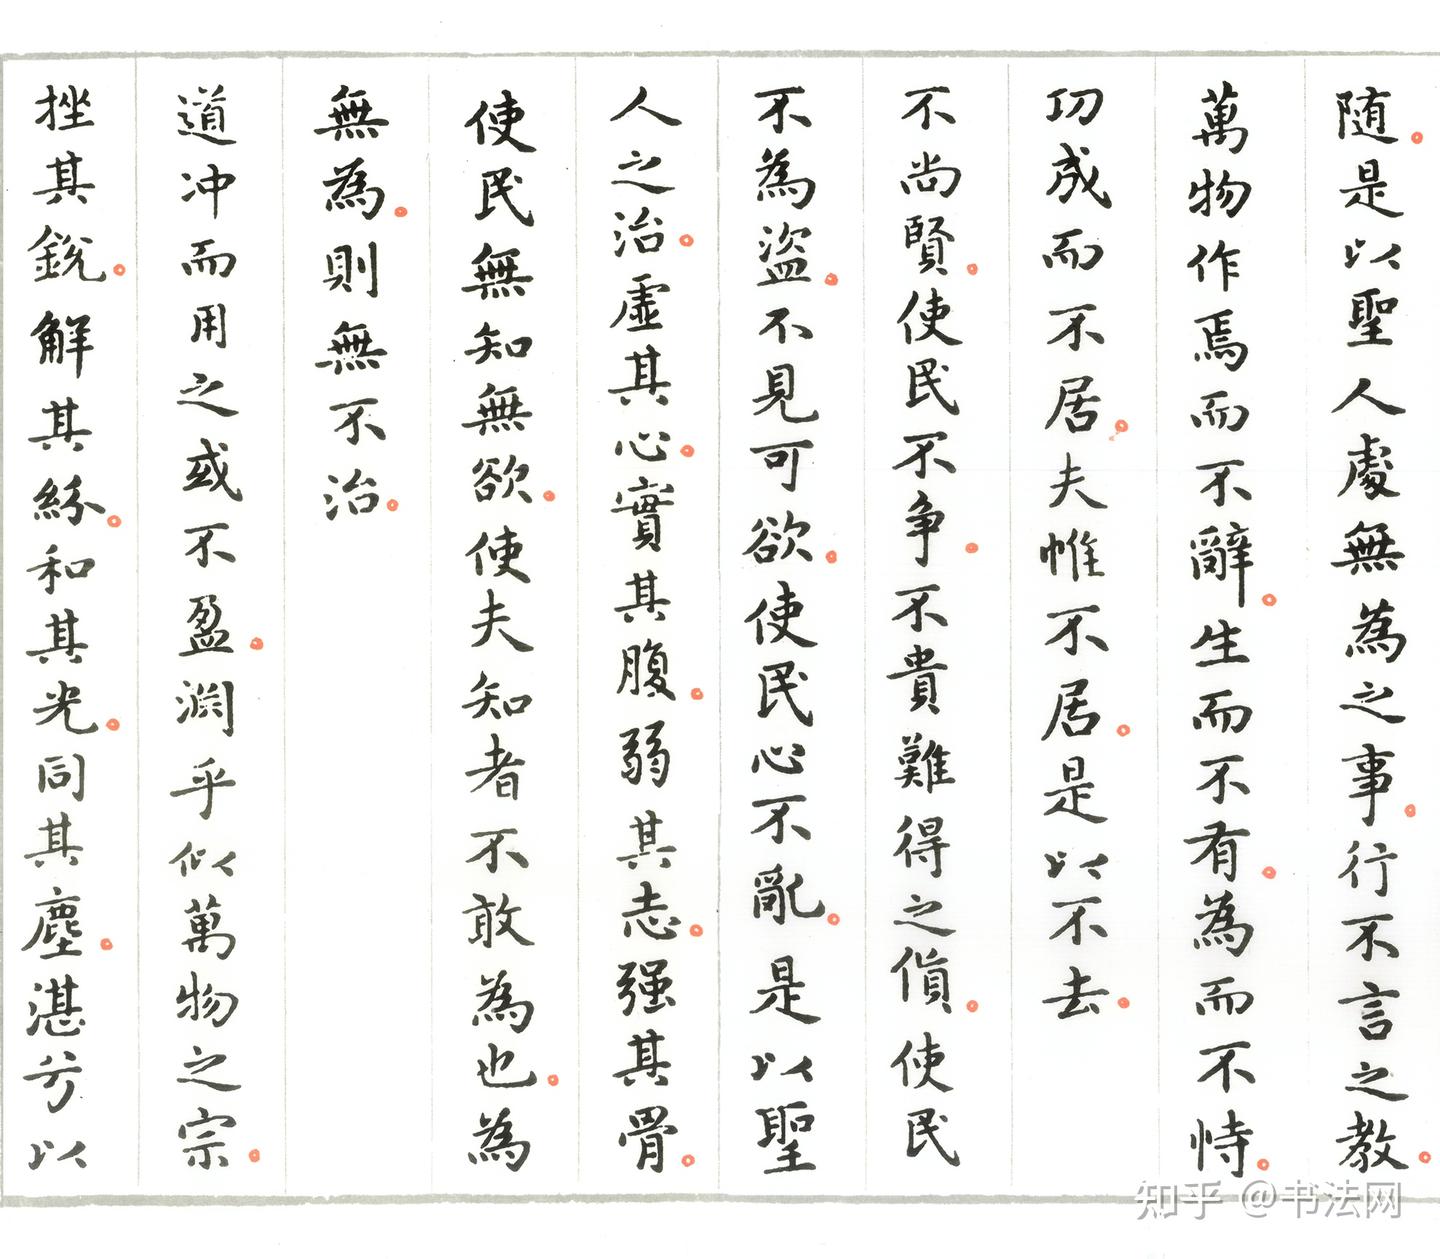 随。是以聖人處無為之事。行不言之教。
萬物作焉而不辭。生而不有。為而不恃。
功成而不居。夫惟不居。是以不去。
不尚賢。使民不争。不貴難得之貨。使民
不為盜。不見可欲。使民心不亂。是以聖
人之治。虛其心。實其腹。弱其志。强其骨。
使民無知無欲。使夫知者不敢為也。為
無為。則無不治。
道冲而用之或不盈。渊乎似萬物之宗。
挫其銳。解其紛。和其光。同其塵。湛兮以
知乎 @书法网